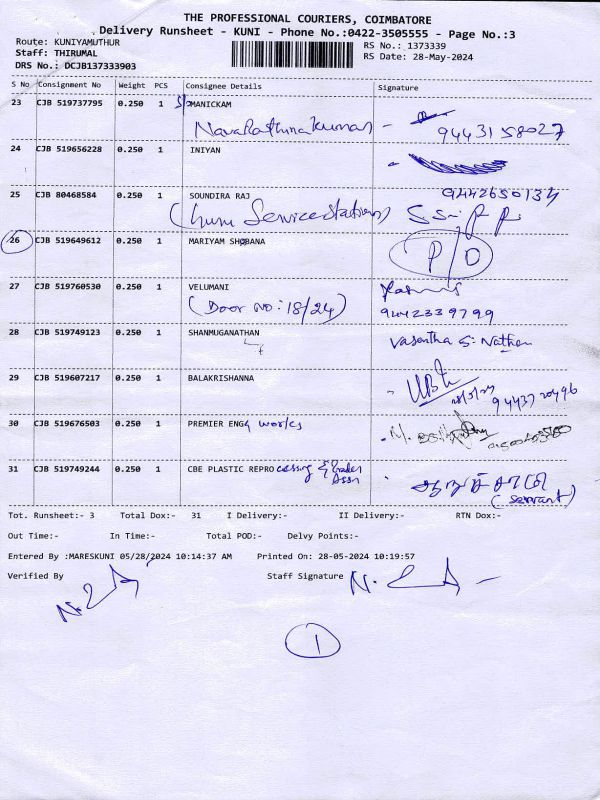 THE PROFESSIONAL COURIERS, COIMBATORE
Delivery Runsheet - KUNI - Phone No.:0422-3505555 - Page No.:3
Route: KUNIYAMUTHUR
RS No.: 1373339
Staff: THIRUMAL
RS Date: 28-May-2024
DRS No.: DCJB137333903
S No Consignment No Weight PCS Consignee Details Signature
23 CJB 519737795 0.250 1 S/o MANICKAM
NavaRathinakumar 9443158027
24 CJB 519656228 0.250 1 INIYAN
25 CJB 80468584 0.250 1 SOUNDIRA RAJ 9442650134
Service Station)
26 CJB 519649612 0.250 1 MARIYAM SHOBANA P/D
27 CJB 519760530 0.250 1 VELUMANI
(Door No: 18/24) 9442339799
28 CJB 519749123 0.250 1 SHANMUGANATHAN Vasentha S. Nathan
29 CJB 519607217 0.250 1 BALAKRISHANNA
28/5/24 9443720496
30 CJB 519676503 0.250 1 PREMIER ENGg works
31 CJB 519749244 0.250 1 CBE PLASTIC REPROcessing & Trader
Assn
(servant)
Tot. Runsheet:- 3 Total Dox:- 31 I Delivery:- II Delivery:- RTN Dox:-
Out Time:- In Time:- Total POD:- Delvy Points:-
Entered By :MARESKUNI 05/28/2024 10:14:37 AM Printed On: 28-05-2024 10:19:57
Verified By Staff Signature
1